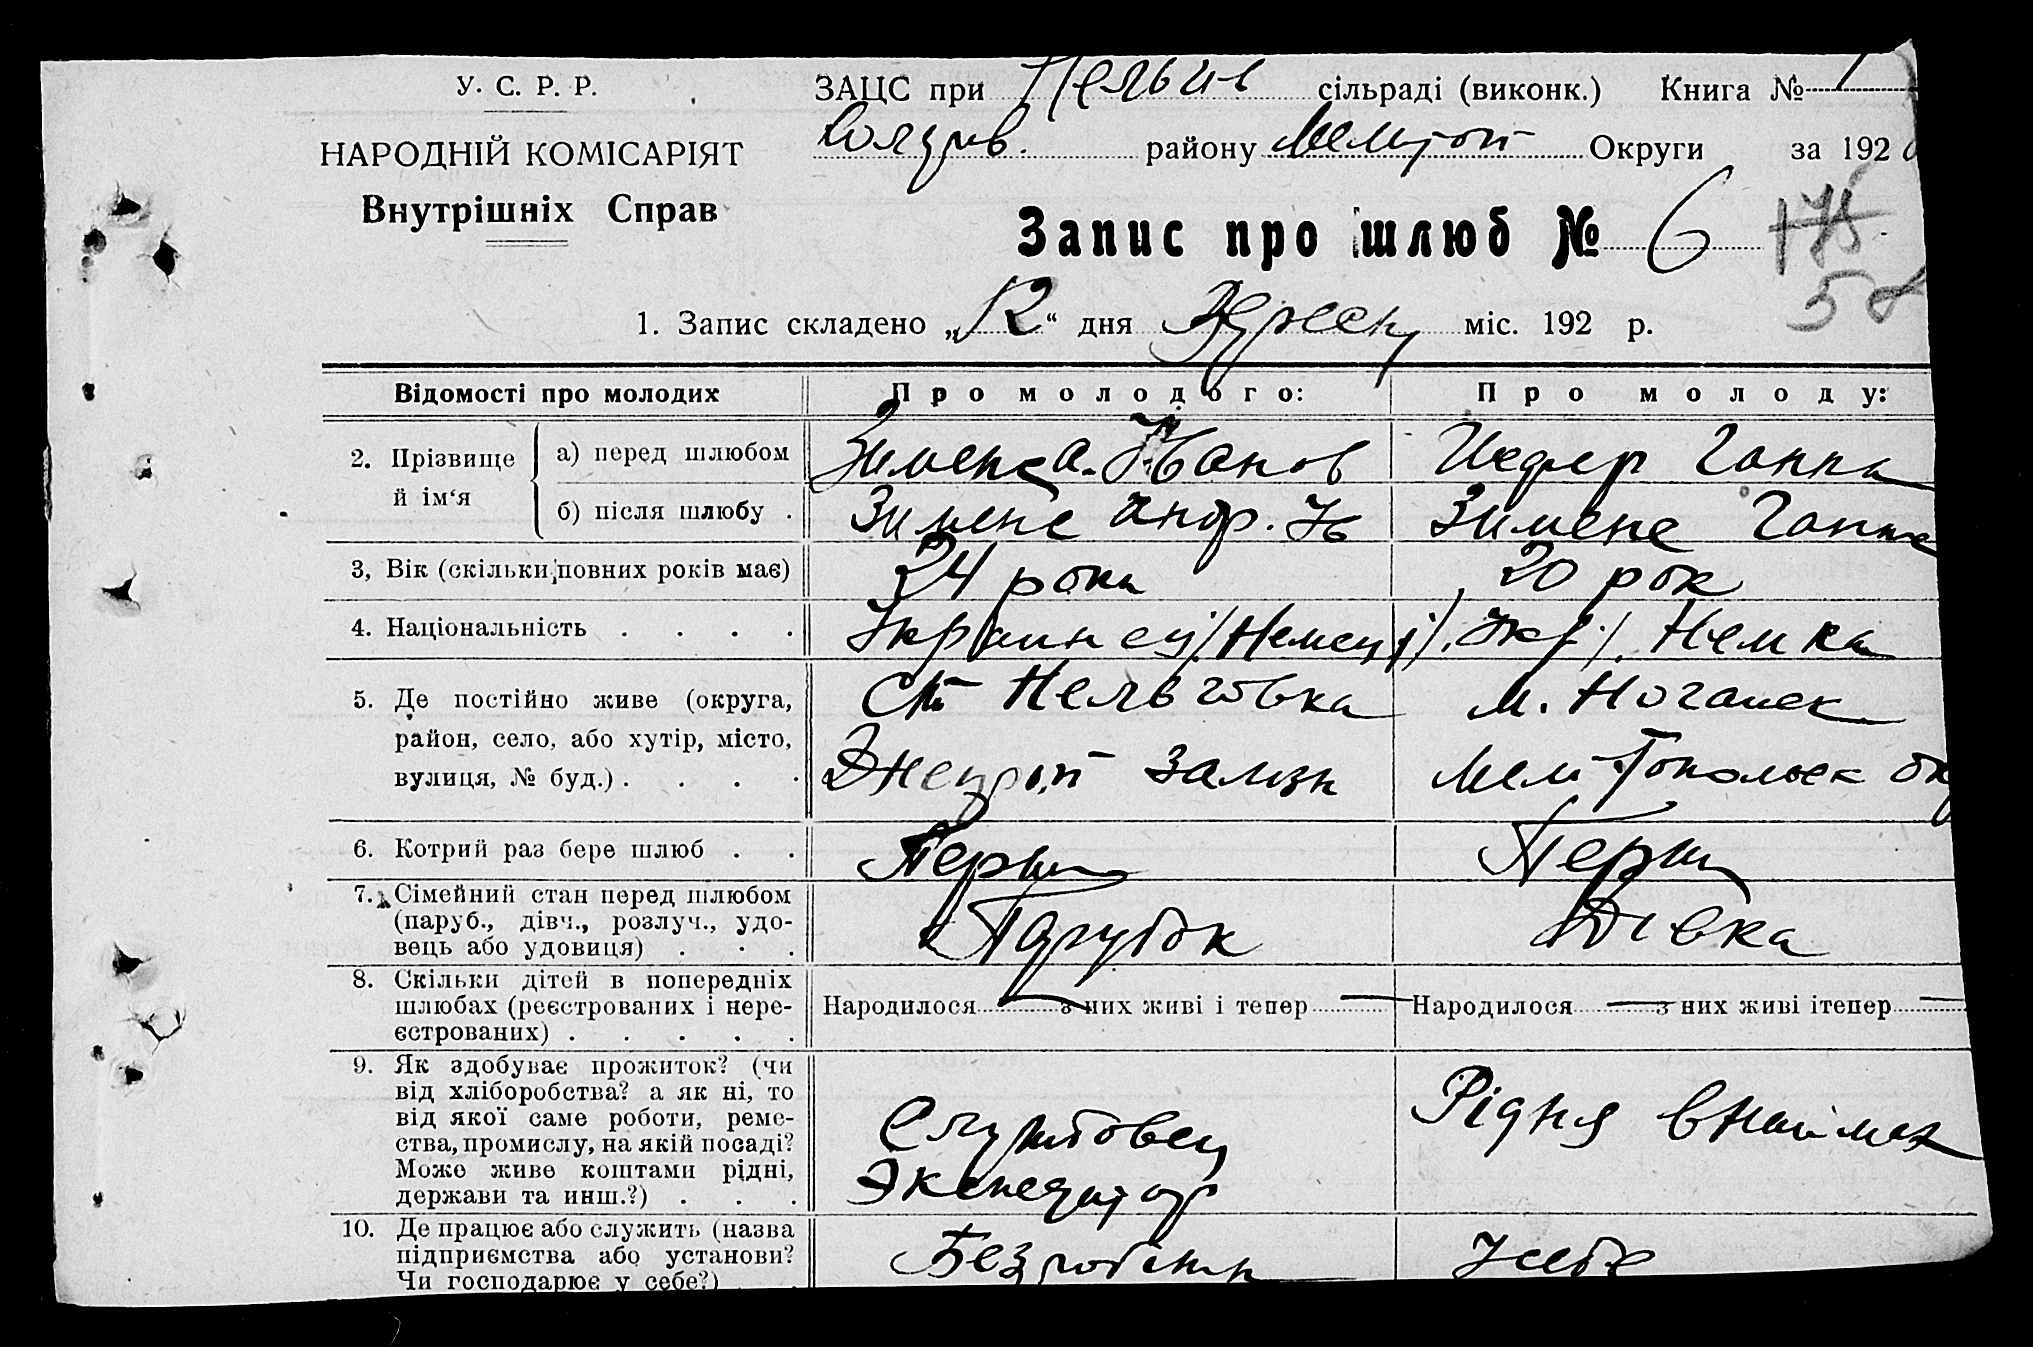 У. С. Р. Р.
НАРОДНІЙ КОМІСАРІЯТ
Внутрішніх Справ
ЗАЦС при сільраді (виконк.) Книга № 1
району Округи за 192
Запис про шлюб № 6
175
58
1. Запис складено „12“ дня Вересня міс. 192 р.
Відомості про молодих Про молодого: Про молоду:
2. Прізвище й ім‘я
а) перед шлюбом Ганна
б) після шлюбу . Зименс Зименс Ганна
3, Вік (скільки повних років має) 24 роки 20 рок
4. Національність . . . . Українец /Немец/. Укр/. Немка
5. Де постійно живе (округа, Ст Нельговка м. Ногайск
район, село, або хутір, місто,
вулиця, № буд.) . . . . Залізн
6. Котрий раз бере шлюб . . Перш Перш
7. Сімейний стан перед шлюбом
(паруб., дівч., розлуч., удо-
вець або удовиця) . . . Парубок Дівка
8. Скільки дітей в попередніх
шлюбах (реєстрованих і нере- Народилося — з них живі і тепер — Народилося — з них живі ітепер —
єстрованих) . . . . .
9. Як здобуває прожиток? (чи
від хліборобства? а як ні, то
від якої саме роботи, реме-
ства, промислу, на якій посаді?
Може живе коштами рідні,
держави та инш.?) . . .
Службовец
Экспедитор
Рідня внаймах
10. Де працює або служить (назва
підприємства або установи?
Чи господарює у себе?) .
Безробітн
Усебе